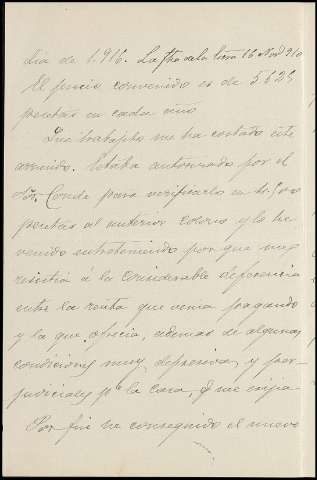 dia de 1.916. La fha de la
El precio convenido es de 5625
pesetas en cada año
Que trabajito me ha costado este
arriendo. Estaba autorizado por el
Sor. Conde para verificarlo en
pesetas al anterior colono y lo he
venido entreteniendo por que me
resistia á la considerable diferencia
entre la renta que venia pagando
y la que ofrecia, ademas de algunas
condiciones muy depresivas y per-
judiciales pa la casa, q me exijia.
Por fin he conseguido el nuevo